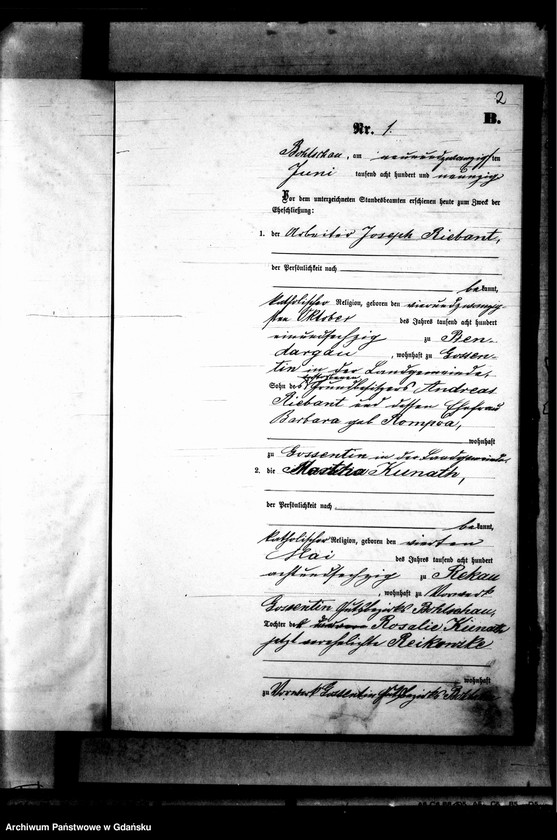 2
B.
Nr. 1.
Bohlschau, am neunundzwanzigsten
Juni tausend acht hundert und neunzig
Vor dem unterzeichneten Standesbeamten erschienen heute zum Zweck der
Eheschließung:
1. der Arbeiter Joseph Riebant,
der Persönlichkeit nach
bekannt,
katholischer Religion, geboren den vierundzwanzig-
sten Oktober des Jahres tausend acht hundert
einundsechzig zu Ben-
dargau, wohnhaft zu Gossen-
tin in der Landgemeinde,
Sohn des verstorbenen Grundbesitzers Andreas
Riebant und dessen Ehefrau
Barbara geb Kompva,
wohnhaft
zu Gossentin in der Landgemeinde.
2. die Martha Kunath,
der Persönlichkeit nach
bekannt,
katholischer Religion, geboren den vierten
Mai des Jahres tausend acht hundert
achtundsechzig zu Rekau
, wohnhaft zu Vorwerk
Gossentin Gutsbezirks Bohlschau,
Tochter der Rosalie Kunath
jetzt verehelichte Reikowske
wohnhaft
zu Vorwerk Gossentin Gutsbezirks
Archiwum Państwowe w Gdańsku